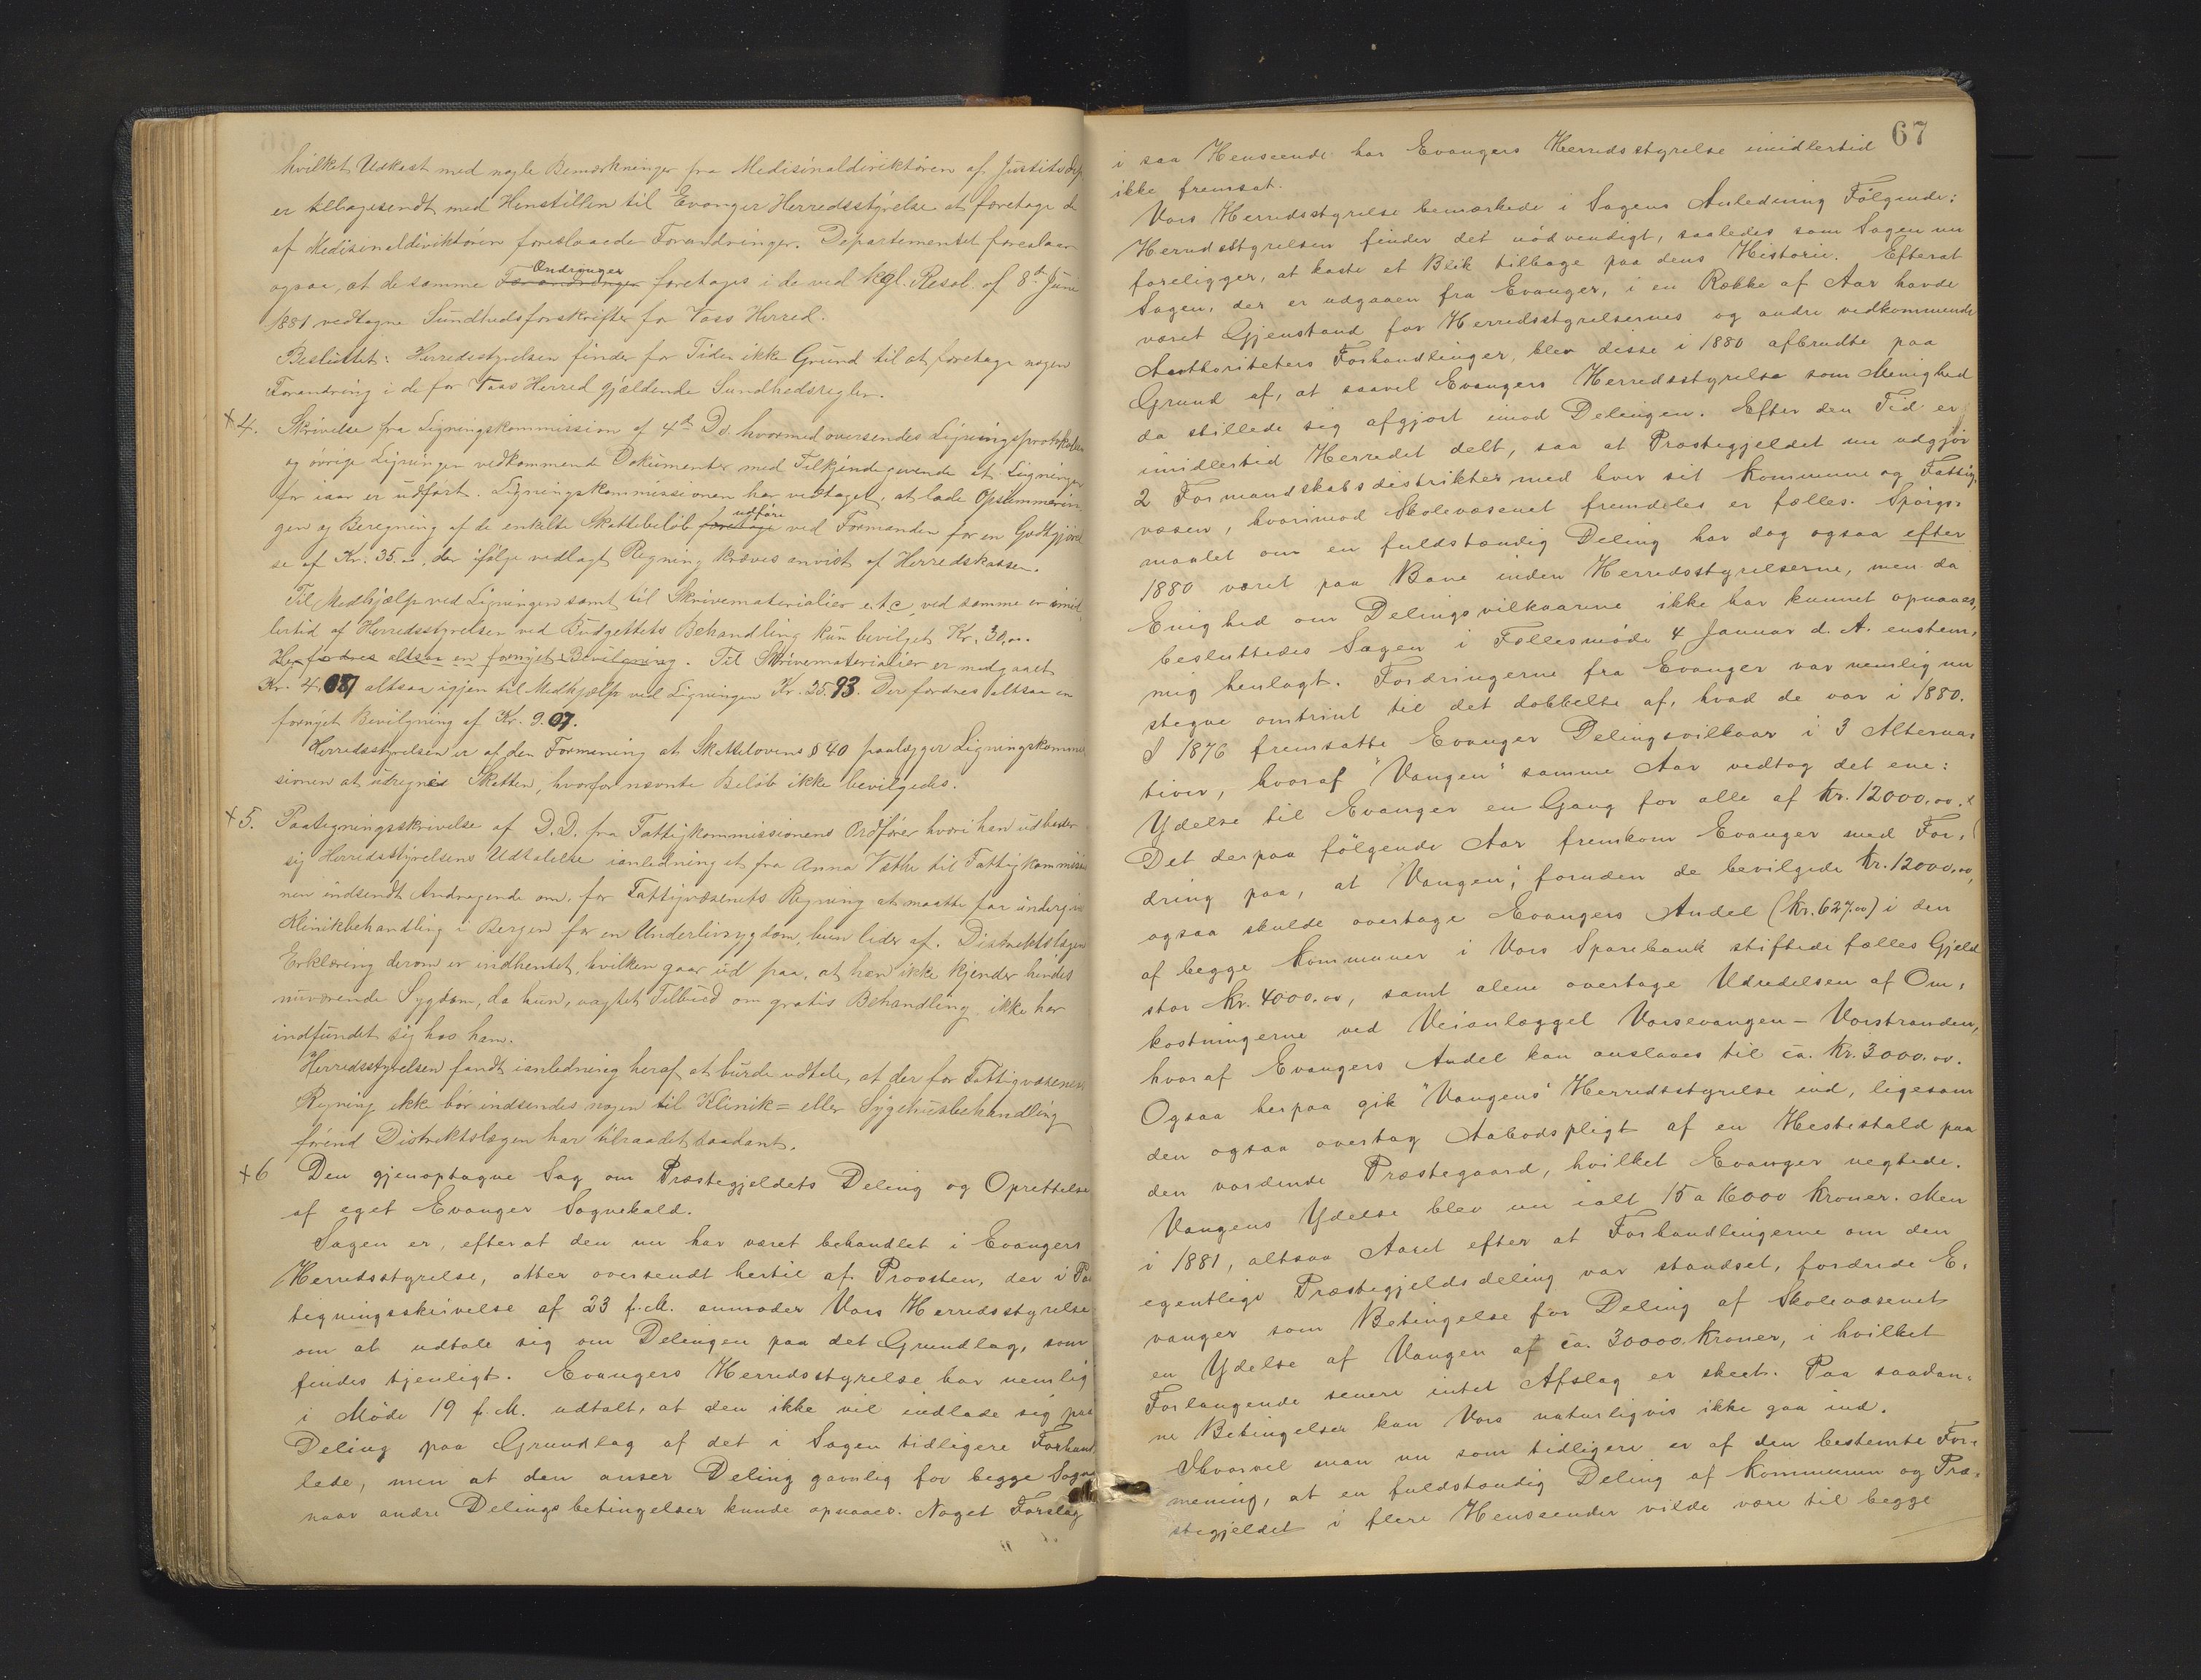 hvilket Udkast med nogle Bemærkninger fra Medisinaldirektören af Justitsdep
er tilbagesendt med Henstillen til Evanger Herredsstyrelse at foretage de
af Medisinaldiriktören foreslaaede Forandringer. Departementet foreslaar
ogsaa, at de samme Forandringer Ændringer foretages i de ved kgl. Resol. af 8de Juni
1881 vedtagne Sundhedsforskrifter for Voss Herred.
Besluttet: Herredsstyrelsen finder for Tiden ikke Grund til at foretage nogen
Forandring i de for Voss Herred gjældende Sundhedsregler.
+4. Skrivelse fra Ligningskommission af 4de Ds. hvormed oversendes Ligningsprotokollen
og övrige Ligningen vedkommende Dokumenter med Tilkjendegivende at Ligningen
for iaar er udfört. Ligningskommissionen har vedtaget, at lade Opsummerin-
gen og Beregning af de enkelte Skattebelöb foretage udföre ved Formanden for en Godtgjörel
se af Kr. 35.00, der ifölge vedlagt Regning kræves anvist af Herredskassen.
Til Medhjælp ved Ligningen samt til Skrivematerialier etc ved samme er imid-
lertid af Herredsstyrelsen ved Budgettets Behandling kun bevilget Kr. 30.00.
Her fordres altsaa en fornyet Bevilgning. Til Skrivematerialier er medgaaet
Kr. 4.07 altsaa igjen til Medhjælp ved Ligningen Kr. 25.93. Der fordres altsaa en
fornyet Bevilgning af Kr. 9.07.
Herredsstyrelsen er af den Formening at Skattelovens § 40 paalægger Ligningskommis
sionen at udregne Skatten, hvorfor nævnte Belöb ikke bevilgedes.
+5. Paategningsskrivelse af D.D. fra Fattigkommissionens Ordförer hvori han udbeder
sig Herredsstyrelsens Udtalelse ianledning et fra Anna Væthe til Fattigkommissio
nen indsendt Andragende om, for Fattigvæsenets Regning at maatte faa undergaa
Klinikbehandling i Bergen for en Underlivssygdom, hun lider af. Distriktslægens
Erklæring derom er indhentet, hvilken gaar ud paa, at han ikke kjender hendes
nuværende Sygdom, da hun, uagtet Tilbud om gratis Behandling, ikke har
indfundet sig hos ham.
Herredsstyrelsen fandt ianledning heraf at burde udtale, at der for Fattigvæsenets
Regning ikke bör indsendes nogen til Klinik= eller Sygehusbehandling
förend Distriktslægen har tilraadet saadant.
+6 Den gjenoptagne Sag om Præstegjeldets Deling og Oprettelse
af eget Evanger Sognekald.
Sagen er, efterat den nu har været behandlet i Evangers
Herredsstyrelse, atter oversendt hertil af Provsten, der i Paa
tegningsskrivelse af 23 f.M. anmoder Vors Herredsstyrelse
om at udtale sig om Delingen paa det Grundlag, som
findes tjenligt. Evangers Herredsstyrelse har nemlig
i Möde 19 f.M. udtalt, at den ikke vil indlade sig paa
Deling paa Grundlag af det i Sagen tidligere Forhand
lede, men at den anser Deling gavnlig for begge Sogne
naar andre Delingsbetingelser kunde opnaaes. Noget Forslag
67
i saa Henseende har Evangers Herredsstyrelse imidlertid
ikke fremsat.
Vors Herredsstyrelse bemærkede i Sagens Anledning Fölgende:
Herredsstyrelsen finder det nödvendigt, saaledes som Sagen nu
foreligger, at kaste et Blik tilbage paa dens Historie. Efterat
Sagen, der er udgaaen fra Evanger, i en Række af Aar havde
været Gjenstand for Herredsstyrelsernes og andre vedkommende
Autoriteters Forhandlinger, blev disse i 1880 afbrudte paa
Grund af, at saavel Evangers Herredsstyrelse som Menighed
da stillede sig afgjort imod Delingen. Efter den Tid er
imidlertid Herredet delt, saa at Præstegjeldet nu udgjör
2 Formandskabsdistrikter med hver sit Kommune og Fattig-
væsen, hvorimod Skolevæsenet fremdeles er fælles. Spörgs-
maalet om en fuldstændig Deling har dog ogsaa efter
1880 været paa Bane inden Herredsstyrelserne, men da
Enighed om Delingsvilkaarene ikke har kunnet opnaaes,
besluttedes Sagen i Fællesmöde 4 Januar d. A. enstem-
mig henlagt. Fordringerne fra Evanger var nemlig nu
stegne omtrint til det dobbelte af, hvad de var i 1880.
I 1876 fremsatte Evanger Delingsvilkaar i 3 Alterna-
tiver, hvoraf "Vangen" samme Aar vedtog det ene:
Ydelse til Evanger en Gang for alle af Kr. 12000.00.
Det derpaa fölgende Aar fremkom Evanger med For-
dring paa, at "Vangen", foruden de bevilgede Kr. 12000.00,
ogsaa skulde overtage Evangers Andel (Kr. 627.00) i den
af begge Kommuner i Vors Sparebank stiftede fælles Gjeld
stor Kr. 4000.00, samt alene overtage Udredelsen af Om-
kostningerne ved Veianlægget Vorsevangen - Vorstranden,
hvoraf Evangers Andel kan anslaaes til ca. Kr. 3000.00.
Ogsaa herpaa gik "Vangens" Herredsstyrelse ind, ligesom
den ogsaa overtog Aabodspligt af en Hestestald paa
den værdende Præstegaard, hvilket Evanger negtede.
Vangens Ydelse blev nu ialt 15 a 16000 Kroner. Men
i 1881, altsaa Aaret efter at Forhandlingerne om den
egentlige Præstegjeldsdeling var standset, fordrede E-
vanger som Betingelse for Deling af Skolevæsenet
en Ydelse af Vangen af ca. 30000 Kroner, i hvilket
Forlangende senere intet Afslag er skeet. Paa saadan-
ne Betingelser kan Vors naturligvis ikke gaa ind.
Ihvorvel man nu som tidligere er af den bestemte For-
mening, at en fuldstændig Deling af Kommunen og Præ-
stegjeldet i flere Henseender vilde være til begge